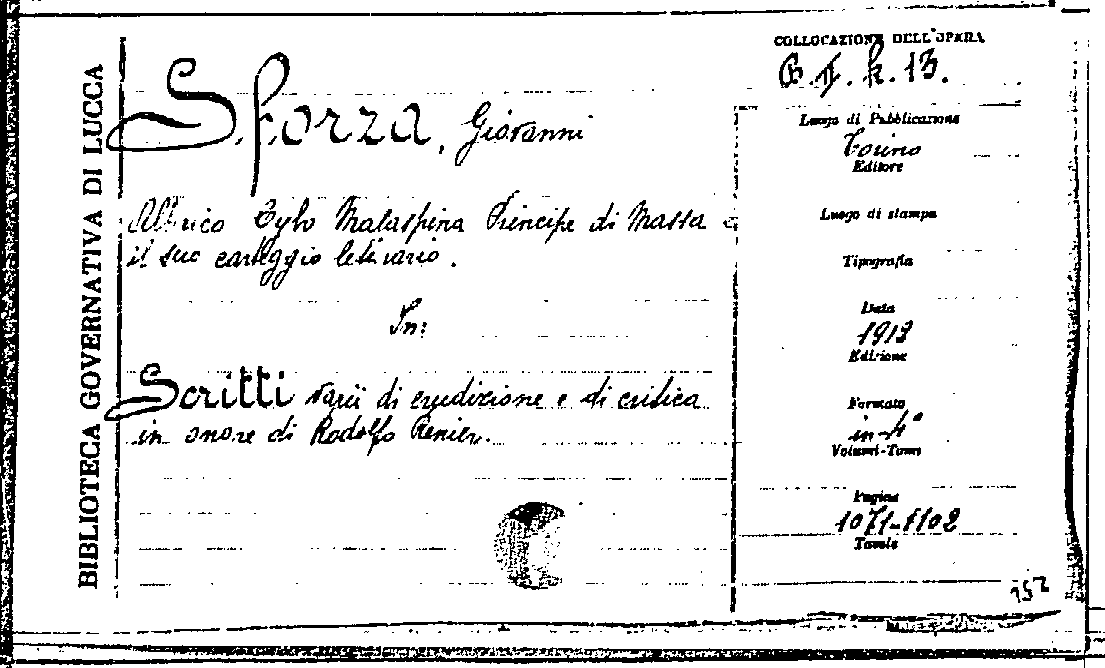 BIBLIOTECA GOVERNATIVA DI LUCCA
Sforza, Giovanni
Alberico Cybo Malaspina Principe di Massa e
il suo carteggio letterario.
In:
Scritti varii di erudizione e di critica
in onore di Rodolfo Renier.
COLLOCAZIONE DELL'OPERA
13.
Luogo di Pubblicazione
Torino
Editore
Luogo di stampa
Tipografia
Data
1913
Edizione
Formato
in-4°
Volumi-Tomi
Pagine
1071-1102
Tavole
152